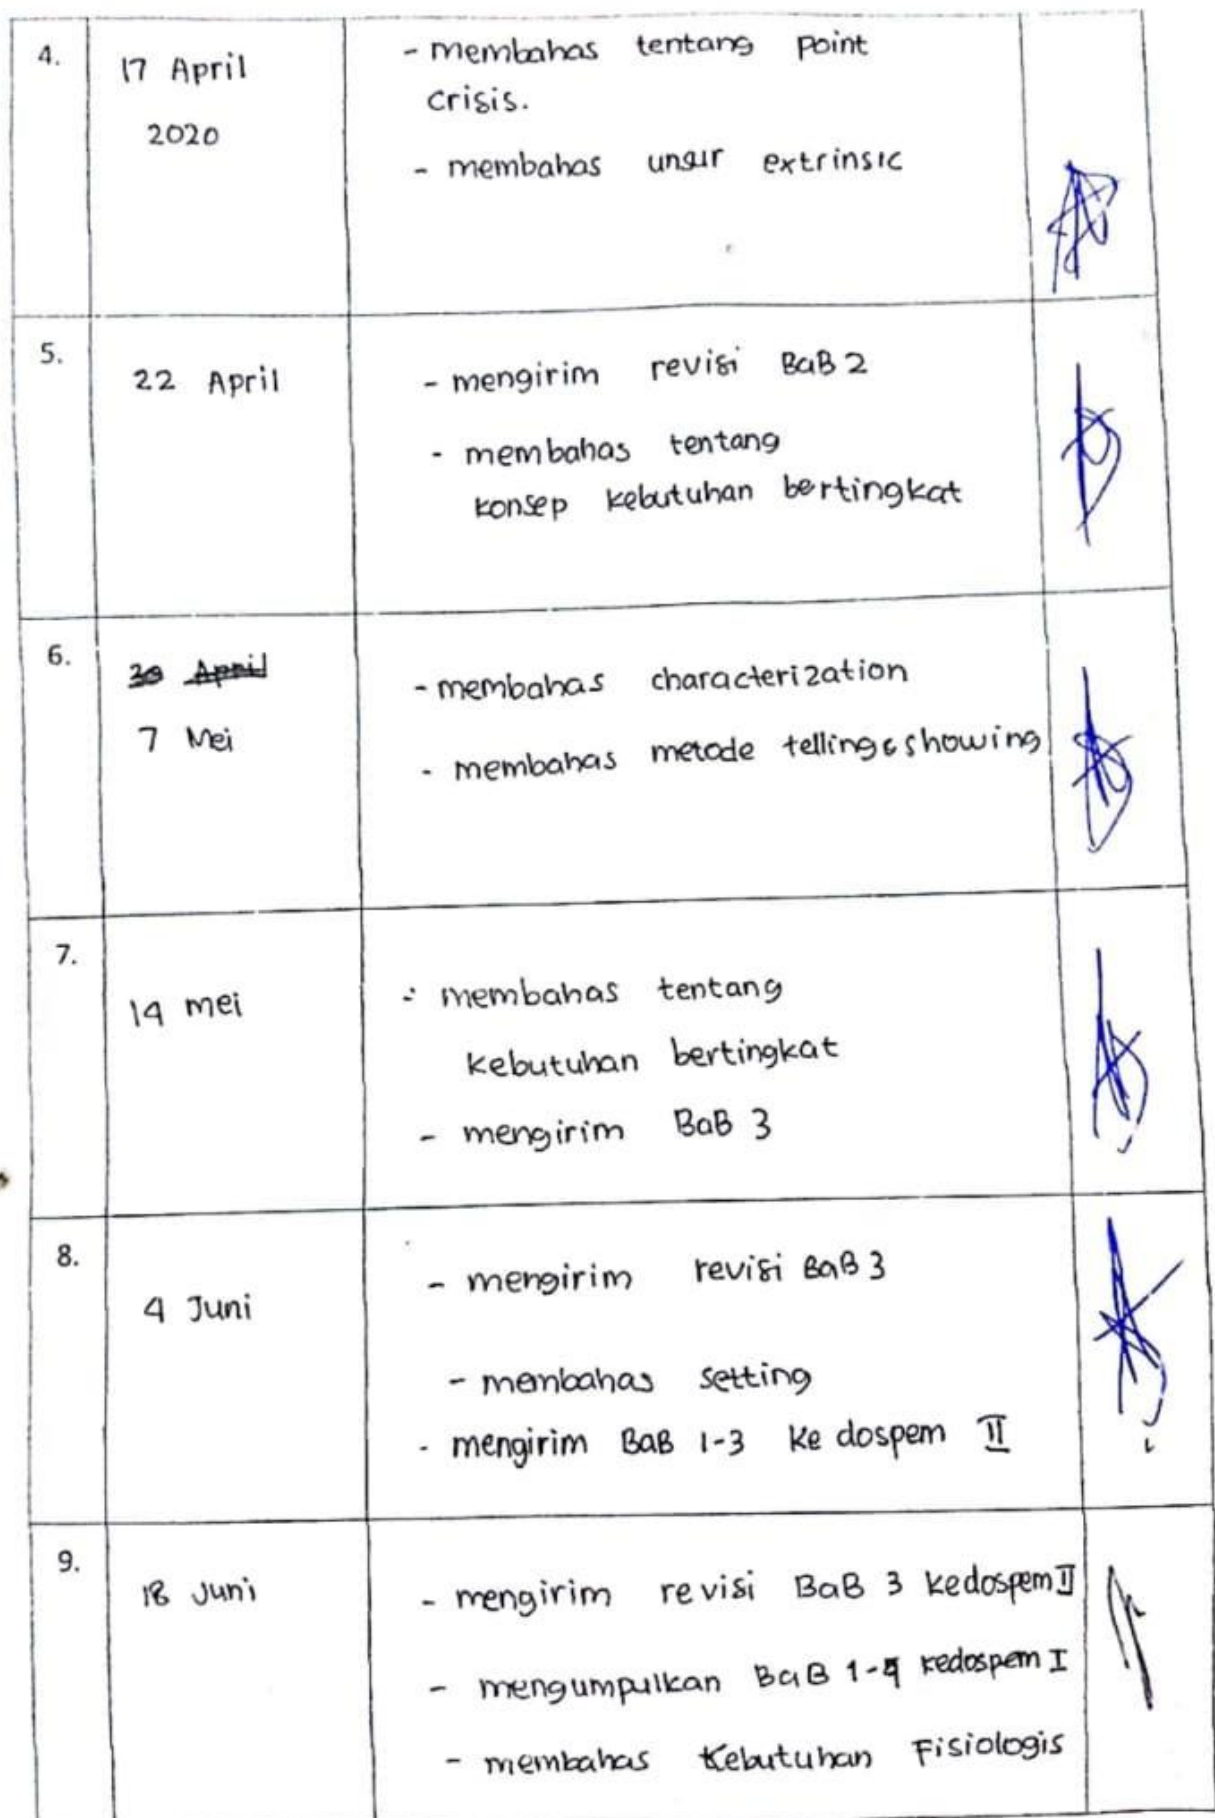 4.
17 April
2020
- membahas tentang point
crisis.
- membahas unsur extrinsic
5.
22 April
- mengirim revisi BaB 2
- membahas tentang
konsep kebutuhan bertingkat
6.
30 April
7 Mei
- membahas characterization
- membahas metode telling & showing
7.
14 mei
- membahas tentang
kebutuhan bertingkat
- mengirim BaB 3
8.
4 Juni
- mengirim revisi BaB 3
- membahas setting
- mengirim BaB 1-3 ke dospem II
9.
18 Juni
- mengirim revisi BaB 3 kedospem II
- mengumpulkan BaB 1-4 kedospem I
- membahas kebutuhan Fisiologis